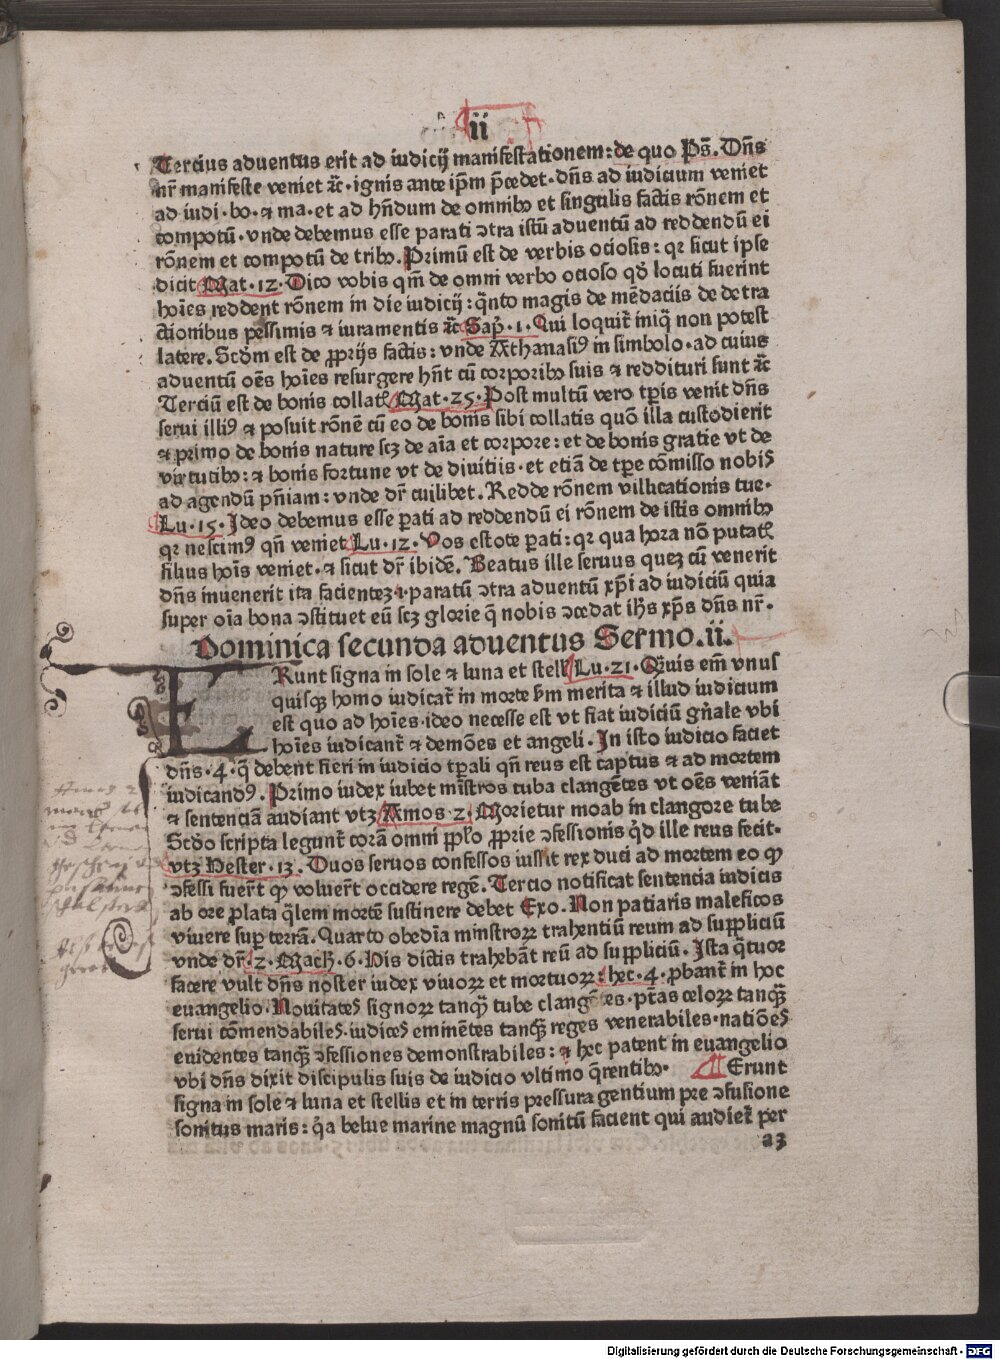 ii
Tercius aduentus erit ad iudicij manifestationem: de quo Ps̄. Dn̄s
nr̄ manifeste veniet ⁊c̄. ignis ante ip̄m p̄cedet. dn̄s ad iudicium veniet
ad iudi. bo. ⁊ ma. et ad hn̄dum de omnibꝰ et singulis factis rōnem et
compotū. vnde debemus esse parati ↄtra istū aduentū ad reddendū ei
rōnem et compotū de tribꝰ. Primū est de verbis ociosis: qr sicut ipse
dicit Mat. 12. Dico vobis qm̄ de omni verbo ocioso qḋ locuti fuerint
hoīes reddent rōnem in die iudicij: q̄nto magis de mēdaciis de detra
ctionibus pessimis ⁊ iuramentis ⁊c̄ Sap̄. 1. Qui loquit̄ iniq̄ non potest
latere. Scd̄m est de ꝓprijs factis: vnde Athanasiꝰ in simbolo. ad cuius
aduentū oēs hoīes resurgere hn̄t cū corporibꝰ suis ⁊ reddituri sunt ⁊c̄
Terciū est de bonis collat̄ Mat. 25. Post multū vero tp̄is venit dn̄s
serui illiꝰ ⁊ posuit rōnē cū eo de bonis sibi collatis quō illa custodierit
⁊ primo de bonis nature scꝫ de aīa et corpore: et de bonis gratie vt de
virtutibꝰ: ⁊ bonis fortune vt de diuitiis. et etiā de tp̄e cōmisso nobis
ad agendū pn̄iam: vnde dr̄ cuilibet. Redde rōnem villicationis tue.
Lu. 15. Ideo debemus esse ꝑati ad reddendū ei rōnem de istis omnibꝰ
qr nescimꝰ qn̄ veniet Lu. 12. Vos estote ꝑati: qr qua hora nō putat̄
filius hoīs veniet. ⁊ sicut dr̄ ibidē. Beatus ille seruus quez cū venerit
dn̄s inuenerit ita facientez .i. paratū ↄtra aduentū xp̄i ad iudiciū quia
super oīa bona ↄstituet eū scꝫ glorie q̄ nobis ↄcedat ih̄s xp̄s dn̄s nr̄.
Dominica secunda aduentus Sermo. ii.
ERunt signa in sole ⁊ luna et stell̄ Lu. 21. Quis em̄ vnus
quisqꝫ homo iudicat̄ in morte ẜm merita ⁊ illud iudicium
est quo ad hoīes. ideo necesse est vt fiat iudiciū gn̄ale vbi
hoīes iudicant̄ ⁊ demōes et angeli. In isto iudicio faciet
dn̄s. 4. q̄ debent fieri in iudicio tp̄ali qn̄ reus est captus ⁊ ad mortem
iudicandꝰ. Primo iudex iubet mīstros tuba clangētes vt oēs veniāt
⁊ sentenciā audiant vtꝫ Amos 2. Morietur moab in clangore tube
Scd̄o scripta legunt̄ corā omni pp̄lo ꝓprie ↄfessionis q̄d ille reus fecit.
vtꝫ Hester. 13. Duos seruos confessos iussit rex duci ad mortem eo ꝙ
ↄfessi fuer̄t ꝙ voluer̄t occidere regē. Tercio notificat sentencia iudicis
ab ore ꝓlata q̄lem mortē sustinere debet Exo. Non patiaris maleficos
viuere suꝑ terrā. Quarto obedīa minstroꝝ trahentiū reum ad suppliciū
vnde dr̄. 2. Mach. 6. His dictis trahebāt reū ad suppliciū. Ista q̄tuor
facere vult dn̄s noster iudex viuoꝝ et mortuoꝝ: hec. 4. ꝓbant̄ in hoc
euangelio. Nouitates signoꝝ tanqꝫ̄ tube clangētes. ptās celoꝝ tanqꝫ̄
serui cōmendabiles. iudices eminētes tanqꝫ̄ reges venerabiles. natiōes
euidentes tanqꝫ̄ ↄfessiones demonstrabiles: ⁊ hec patent in euangelio
vbi dn̄s dixit discipulis suis de iudicio vltimo q̄rentibꝰ. ¶ Erunt
signa in sole ⁊ luna et stellis et in terris pressura gentium pre ↄfusione
sonitus maris: q̄a belue marine magnū sonitū facient qui audiet̄ per
a3
Digitalisierung gefördert durch die Deutsche Forschungsgemeinschaft - DFG